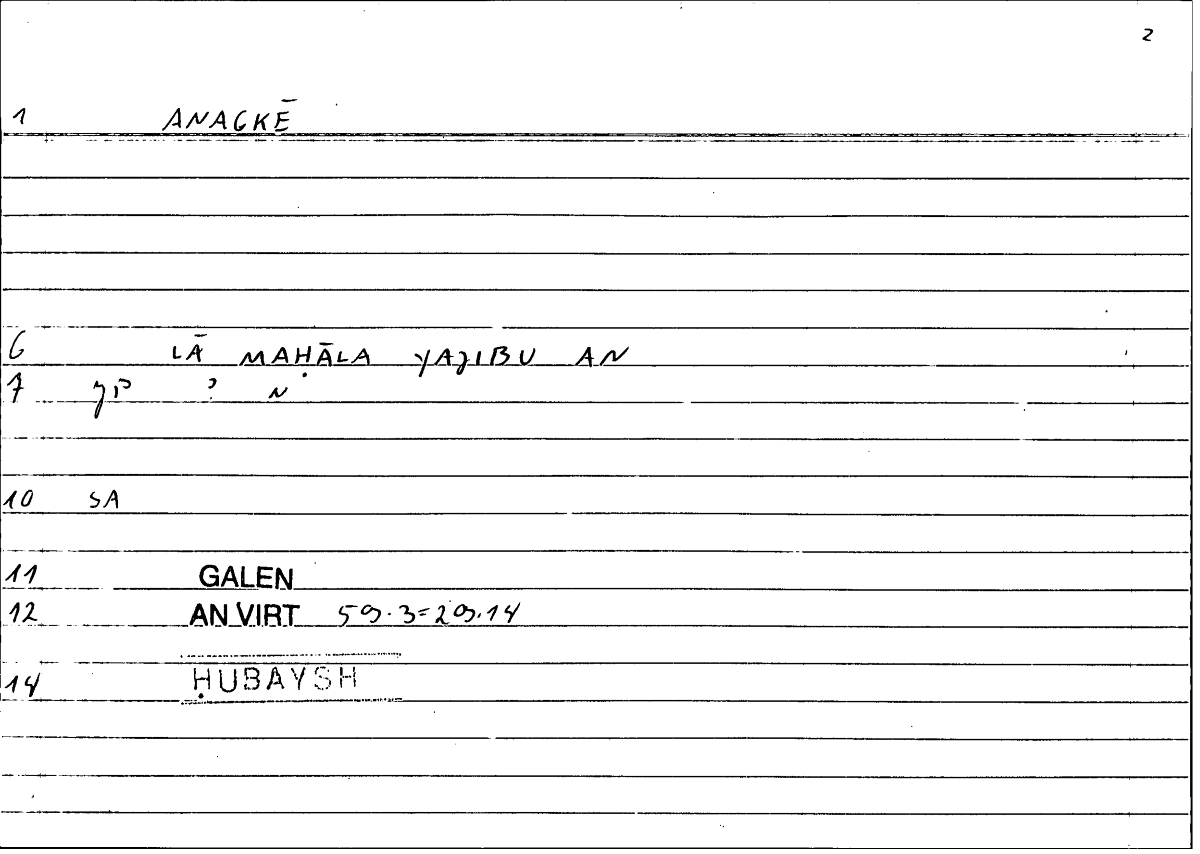 2
1 ANAGKĒ
6 LĀ MAḤĀLA YAJIBU AN
7 JP ? N
10 SA
11 GALEN
12 AN VIRT 59.3=29.14
14 ḤUBAYSH